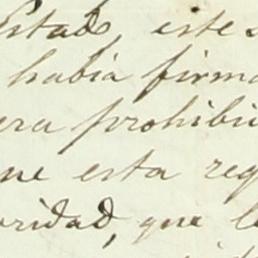 Estado, este
había firma
era prohibi
ne esta reg
oridad, que l